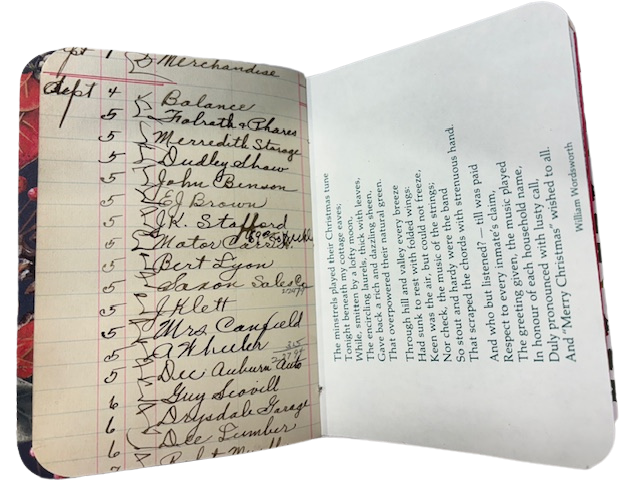 Sept 1 Merchandise
Sept 4 Balance
5 Folrath & Phares
5 Merredith Storage
5 Dudley Shaw
5 John Binson
5 EJ Brown
5 J.K. Stafford
5 Motor Car
5 Bert Lyon
5 Saxon Sales Co
5 J Klett
5 Mrs Canfield
5 A Wheeler
5 Dee Auburn Auto
6 Guy Scovill
6 Drysdale Garage
6 Dee Lumber
The minstrels played their Christmas tune
Tonight beneath my cottage eaves;
While, smitten by a lofty moon,
The encircling laurels, thick with leaves,
Gave back a rich and dazzling sheen,
That overpowered their natural green.
Through hill and valley every breeze
Had sunk to rest with folded wings:
Keen was the air, but could not freeze,
Nor check, the music of the strings;
So stout and hardy were the band
That scraped the chords with strenuous hand.
And who but listened? — till was paid
Respect to every inmate's claim,
The greeting given, the music played
In honour of each household name,
Duly pronounced with lusty call,
And "Merry Christmas" wished to all.
William Wordsworth